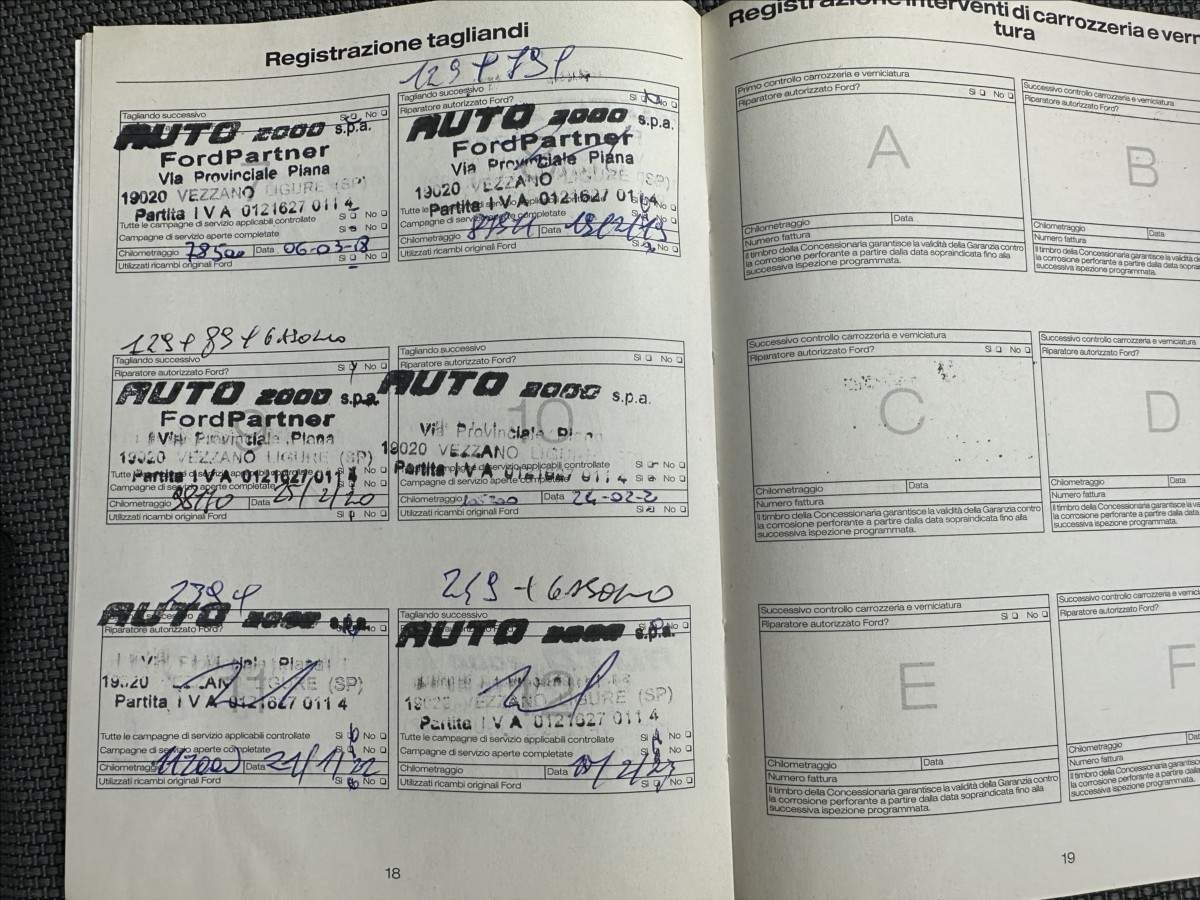 Registrazione tagliandi
129 + 79 +
Tagliando successivo
Sì No
AUTO 2000 s.p.a.
FordPartner
Via Provinciale Piana
19020 VEZZANO LIGURE (SP)
Partita IVA 0121627 011 4
Sì No
Tutte le campagne di servizio applicabili controllate
Campagne di servizio aperte completate
Sì No
Chilometraggio 78500 Data 06-03-18
Utilizzati ricambi originali Ford
Sì No
Tagliando successivo
Riparatore autorizzato Ford?
Sì No
AUTO 2000 s.p.a.
FordPartner
Via Provinciale Piana
19020 VEZZANO LIGURE (SP)
Partita IVA 0121627 011 4
Tutte le campagne di servizio
Campagne di servizio aperte completate
Chilometraggio Data
Sì No
Utilizzati ricambi originali Ford
129 + 89 + GASOLIO
Tagliando successivo
Riparatore autorizzato Ford?
Sì No
AUTO 2000 s.p.a.
FordPartner
9
Via Provinciale Piana
19020 VEZZANO LIGURE (SP)
Partita IVA 0121627 011 4
Tutte
Sì No
Campagne di servizio aperte completate
Sì No
Chilometraggio 98170 Data 25/2/20
Utilizzati ricambi originali Ford
Sì No
Tagliando successivo
Riparatore autorizzato Ford?
Sì No
AUTO 2000 s.p.a.
10
Via Provinciale Piana
19020 VEZZANO LIGURE
Partita IVA 0121627 011 4
di servizio applicabili controllate
Sì No
Campagne di servizio aperte completate
Sì No
Chilometraggio Data 24-02-2
Utilizzati ricambi originali Ford
Sì No
239 +
AUTO 2000 s.p.a.
Riparatore autorizzato Ford?
No
11
Piana
19020 LIGURE (SP)
Partita IVA 0121627 011 4
Tutte le campagne di servizio applicabili controllate
Sì No
Campagne di servizio aperte completate
Sì No
Chilometraggio 117000 Data 21/1/22
Utilizzati ricambi originali Ford
Sì No
249 + GASOLIO
Tagliando successivo
AUTO 2000 s.p.a.
12
19020 VEZZANO LIGURE (SP)
Partita IVA 0121627 011 4
Tutte le campagne di servizio applicabili controllate
Sì No
Campagne di servizio aperte completate
Sì No
Chilometraggio Data
Utilizzati ricambi originali Ford
Sì No
18
Registrazione interventi di carrozzeria e vern
tura
Primo controllo carrozzeria e verniciatura
Riparatore autorizzato Ford?
Sì No
A
Chilometraggio Data
Numero fattura
Il timbro della Concessionaria garantisce la validità della Garanzia contro
la corrosione perforante a partire dalla data sopraindicata fino alla
successiva ispezione programmata.
Successivo controllo carrozzeria e verniciatura
Riparatore autorizzato Ford?
B
Chilometraggio Data
Numero fattura
Il timbro della Concessionaria garantisce la validità de
la corrosione perforante a partire dalla data sopra
successiva ispezione programmata.
Successivo controllo carrozzeria e verniciatura
Riparatore autorizzato Ford?
Sì No
C
Chilometraggio Data
Numero fattura
Il timbro della Concessionaria garantisce la validità della Garanzia contro
la corrosione perforante a partire dalla data sopraindicata fino alla
successiva ispezione programmata.
Successivo controllo carrozzeria e verniciatura
Riparatore autorizzato Ford?
D
Chilometraggio
Numero fattura
Il timbro della Concessionaria garantisce la validità
la corrosione perforante a partire dalla data sopra
successiva ispezione programmata.
Successivo controllo carrozzeria e verniciatura
Riparatore autorizzato Ford?
Sì No
E
Chilometraggio Data
Numero fattura
Il timbro della Concessionaria garantisce la validità della Garanzia contro
la corrosione perforante a partire dalla data sopraindicata fino alla
successiva ispezione programmata.
Successivo controllo carrozzeria e vernicia
Riparatore autorizzato Ford?
F
Chilometraggio Dat
Numero fattura
Il timbro della Concessionaria garantisce
la corrosione perforante a partire dalla
successiva ispezione programmata.
19